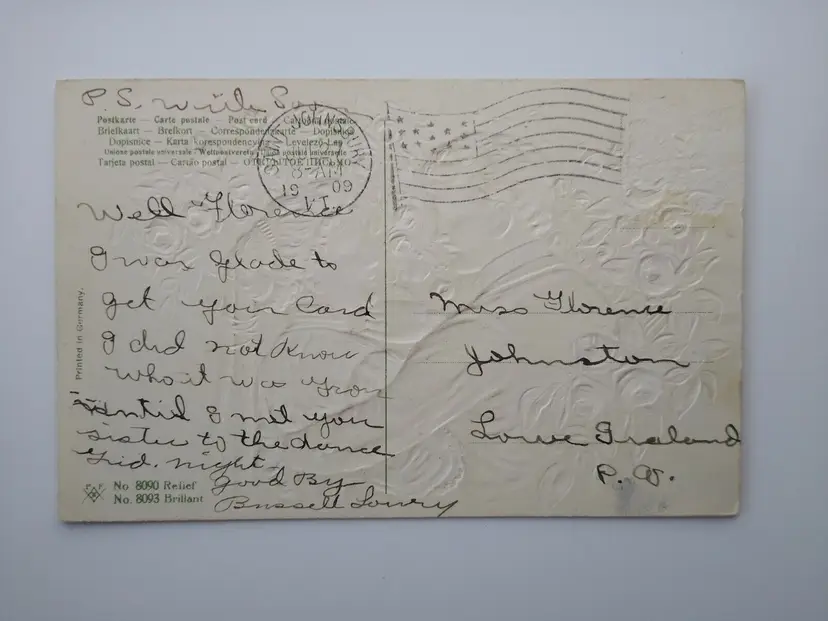 P.S. write
Postkarte — Carte postale — Post card —
Briefkaart — Brefkort — Correspondenzkarte — Dopisnica
Dopisnice — Karta korespondencyjna — Levelező-Lap
Unione postale universale — Weltpostverein — Union postale universelle
Tarjeta postal — Cartão postal — ОТКРЫТОЕ ПИСЬМО
SAINT JOHNSBURY
8-AM
19 09
VT.
Well Florence
I was glade to
get your Card
I did not know
who it was from
untid I met you
sister to the dance
Frid. night.
Good By
Russell Lowry
Printed in Germany.
No 8090 Relief
No. 8093 Brillant
Miss Florence
Johnston
Lowe